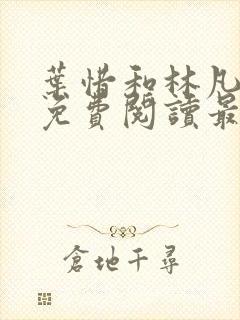 葉惜和林凡
免費閱讀最
倉地千尋